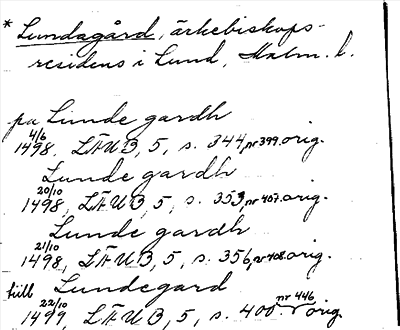 * Lundagård, ärkebiskops-
residens i Lund, Malm. l.
pa Lunde gardh
4/6 1498, LÄUB, 5, s. 344, nr 399. orig.
Lunde gardh
20/10 1498, LÄUB, 5, s. 353, nr 407. orig.
Lunde gardh
21/10 1498, LÄUB, 5, s. 356, nr 408. orig.
till Lundegard
22/10 1499, LÄUB, 5, s. 400 nr 446 orig.